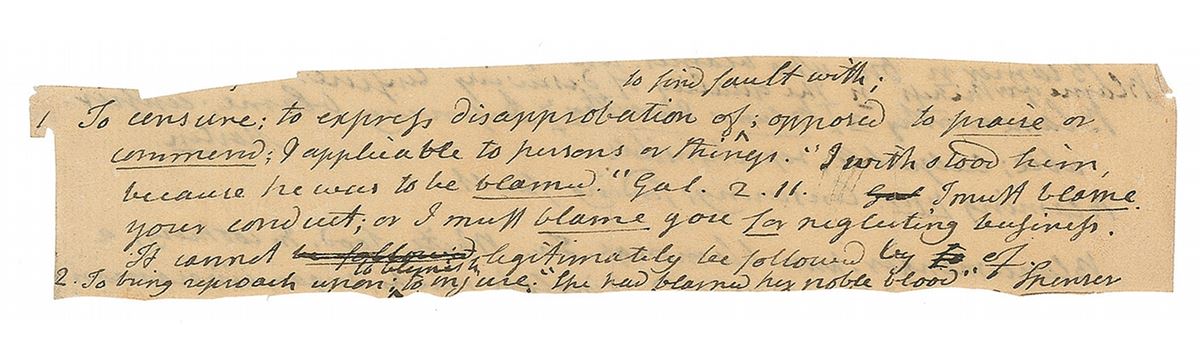 to find fault with;
1 To censure; to express disapprobation of; opposed to praise or
commend; & applicable to persons or things. "I withstood him,
because he was to be blamed." Gal. 2. 11. Gal I must blame
your conduct; or I must blame you for neglecting business.
It cannot be followed legitimately be followed by of.
to blemish;
2. To bring reproach upon; to injure. "She had blamed her noble blood" Spenser